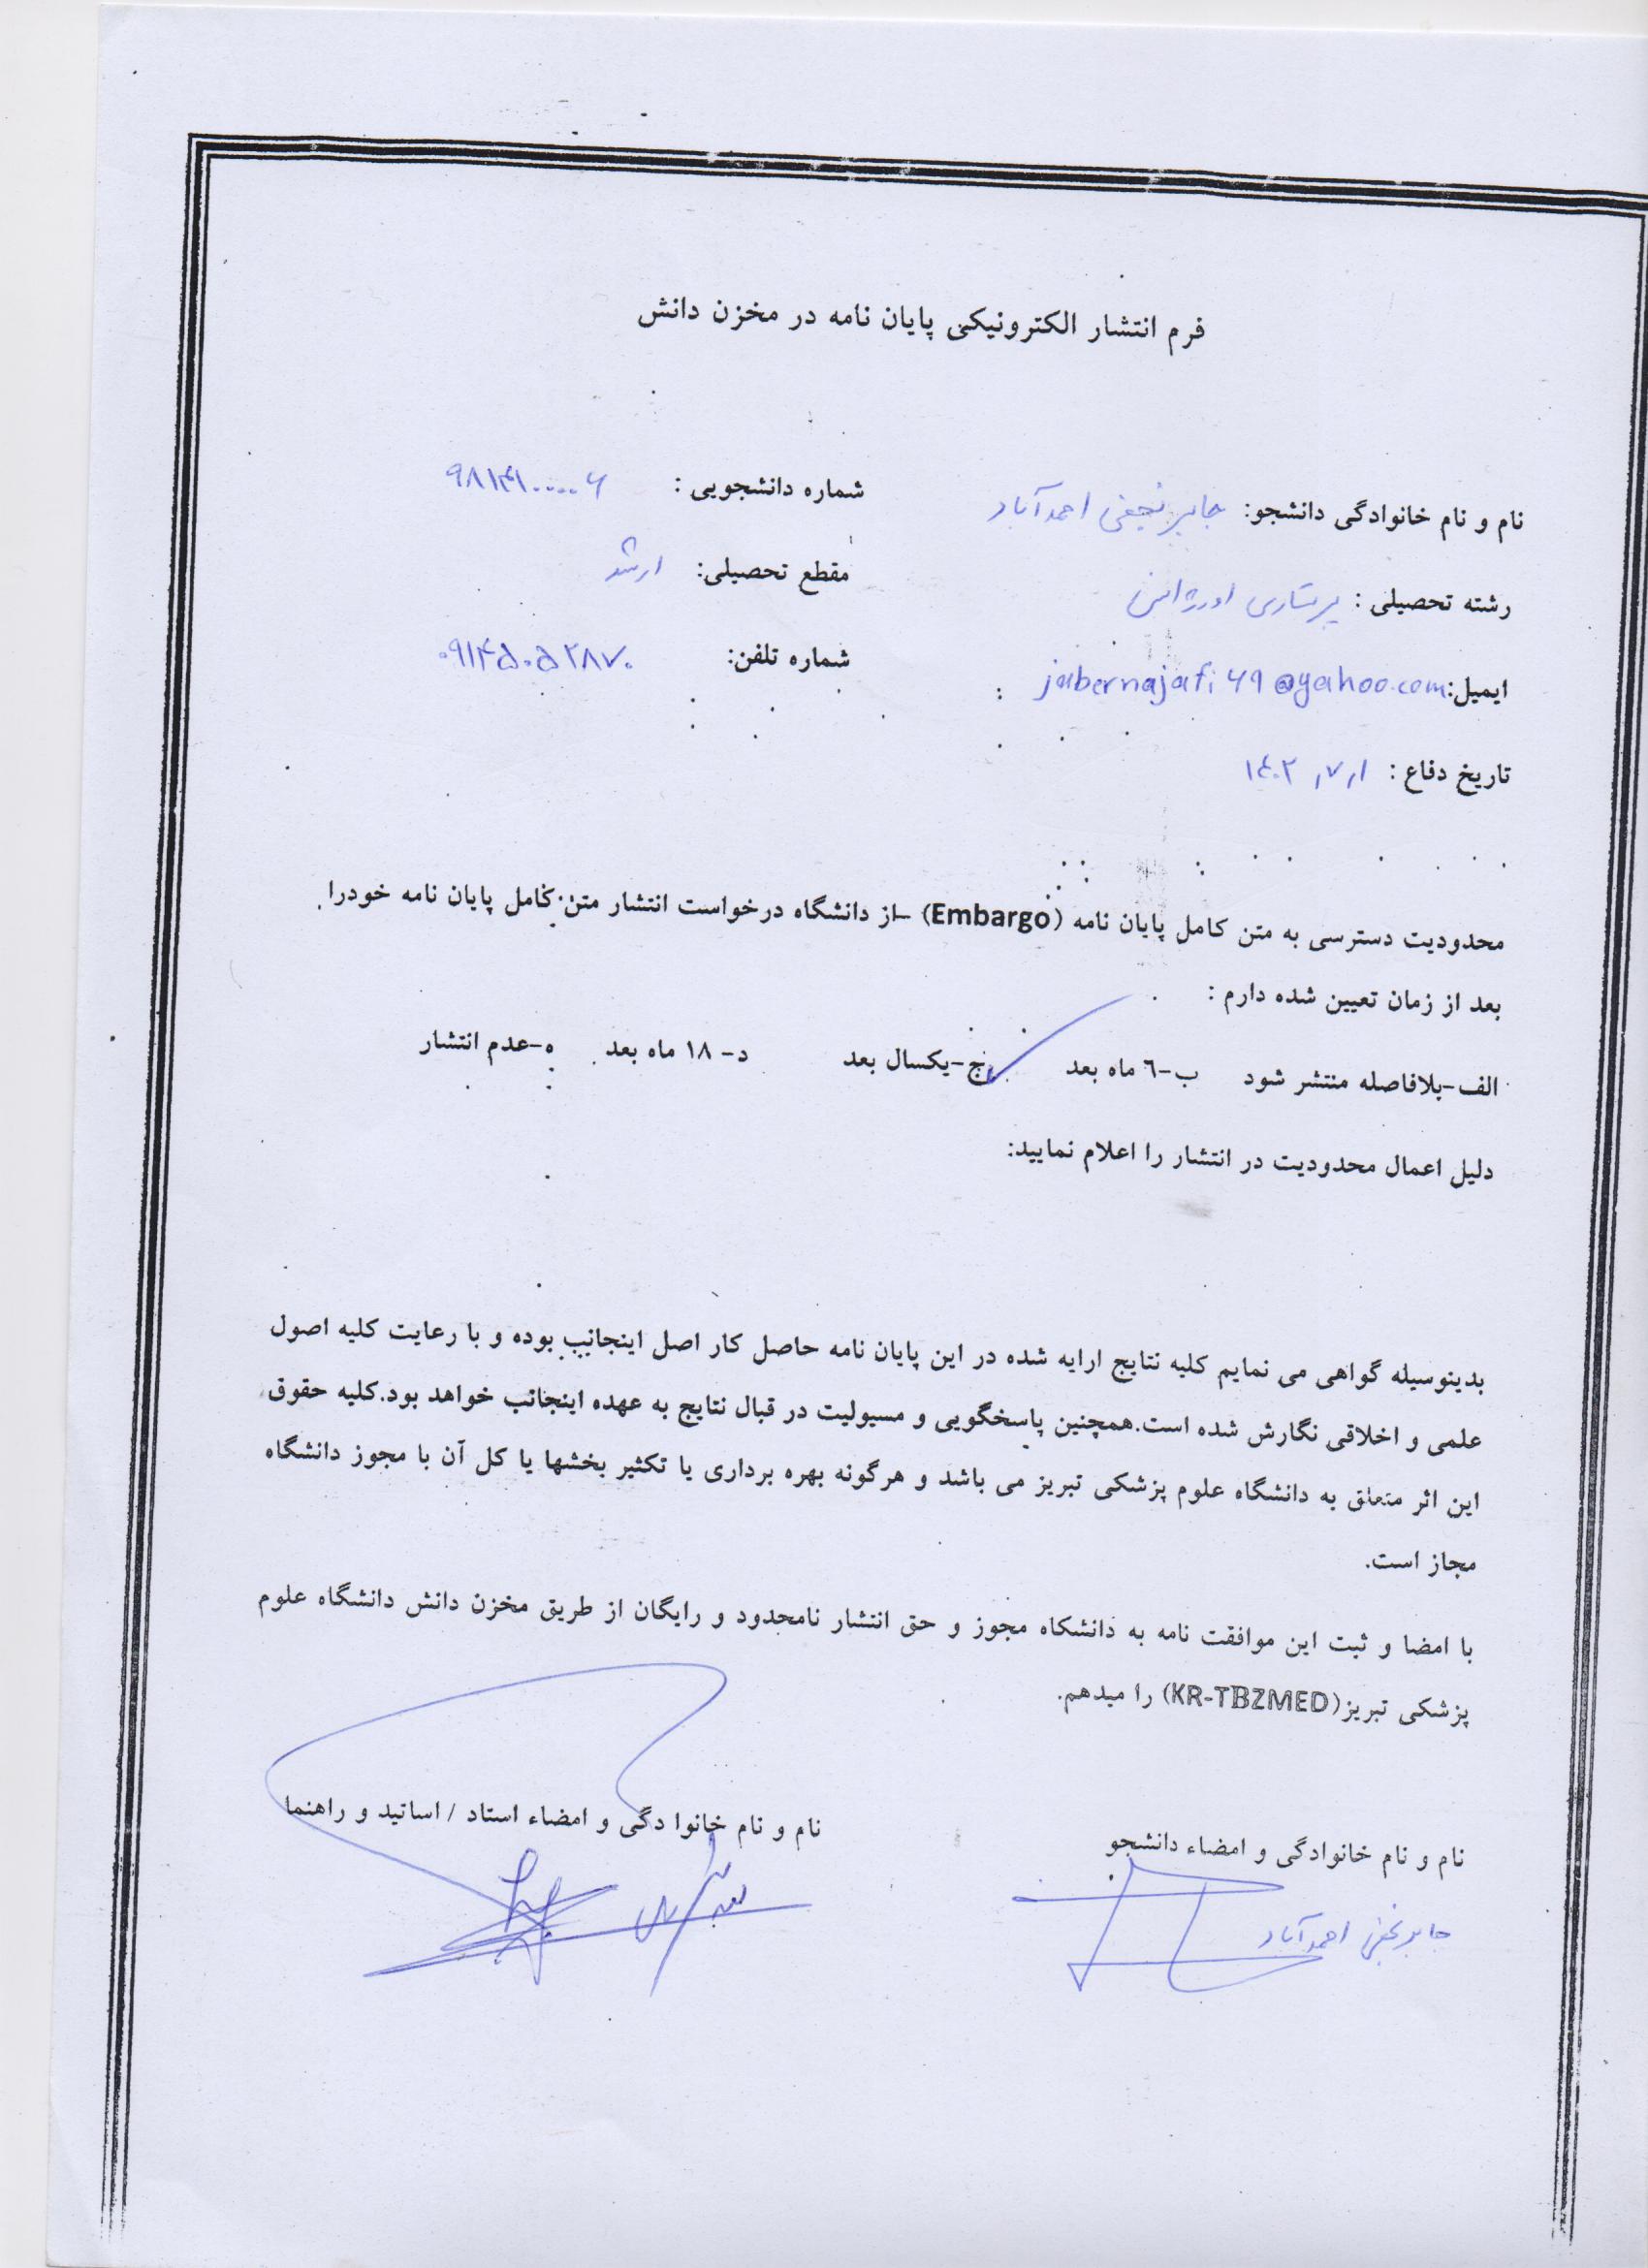 فرم انتشار الکترونیکی پایان نامه در مخزن دانش
نام و نام خانوادگی دانشجو: جابر نجفی احمدآباد شماره دانشجویی :
رشته تحصیلی : پرستاری اورژانس مقطع تحصیلی: ارشد
ایمیل: jabernajafi69@yahoo.com شماره تلفن: ۰۹۱۴۵۰۵۲۸۷۰
تاریخ دفاع : ۱۴۰۲٫۷٫۱
محدودیت دسترسی به متن کامل پایان نامه (Embargo) –از دانشگاه درخواست انتشار متن کامل پایان نامه خودرا
بعد از زمان تعیین شده دارم :
الف-بلافاصله منتشر شود ب-٦ ماه بعد ج-یکسال بعد د- ١٨ ماه بعد ه-عدم انتشار
دلیل اعمال محدودیت در انتشار را اعلام نمایید:
بدینوسیله گواهی می نمایم کلیه نتایج ارایه شده در این پایان نامه حاصل کار اصل اینجانب بوده و با رعایت کلیه اصول
علمی و اخلاقی نگارش شده است.همچنین پاسخگویی و مسیولیت در قبال نتایج به عهده اینجانب خواهد بود.کلیه حقوق
این اثر متعلق به دانشگاه علوم پزشکی تبریز می باشد و هرگونه بهره برداری یا تکثیر بخشها یا کل آن با مجوز دانشگاه
مجاز است.
با امضا و ثبت این موافقت نامه به دانشکاه مجوز و حق انتشار نامحدود و رایگان از طریق مخزن دانش دانشگاه علوم
پزشکی تبریز(KR-TBZMED) را میدهم.
نام و نام خانوادگی و امضاء دانشجو نام و نام خانوا دگی و امضاء استاد / اساتید و راهنما
جابر نجفی احمدآباد